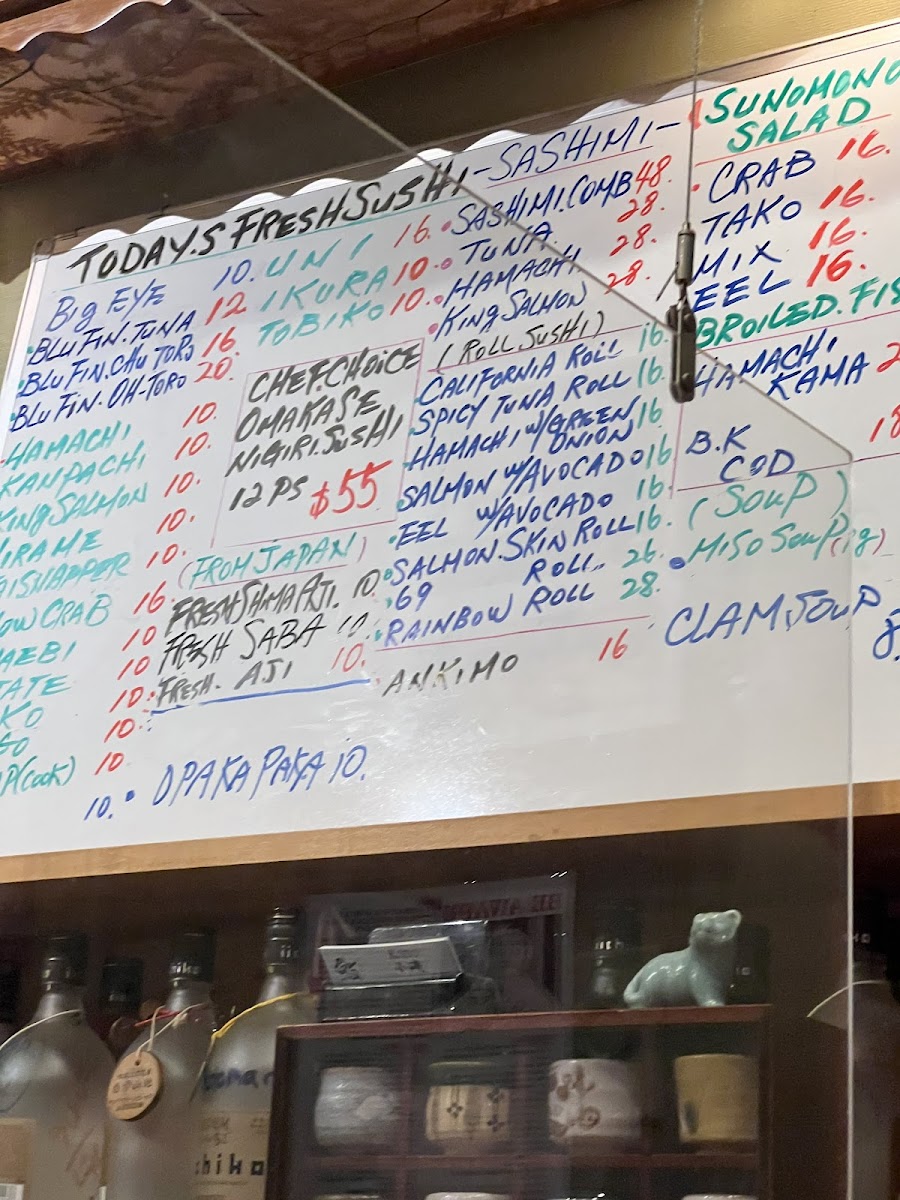 TODAY.S FRESH SUSHI
Big EYE 10.
BLUFIN.TUNA 12
BLUFIN.CHUTORO 16.
BLUFIN.OH-TORO 20.
HAMACHI 10.
KANPACHI 10.
KING SALMON 10.
IRAME 10.
AISNAPPER 10.
OW CRAB 16.
AEBI 10
TATE 10
KO 10.
GO 10.
P(COOK) 10
10.
UNI 16.
IKURA 10.
TOBIKO 10.
CHEF.CHOICE
OMAKASE
NIGIRI.SUSHI
12 PS $55
(FROM JAPAN)
FRESH SHIMA AJI. 10
FRESH SABA 10.
FRESH. AJI 10.
OPAKAPAKA 10.
-SASHIMI-
SASHIMI.COMB 48.
TUNA 28.
HAMACHI 28.
KING SALMON 28.
(ROLL.SUSHI)
CALIFORNIA ROLL 16.
SPICY TUNA ROLL 16.
HAMACHI W/GREEN 16
ONION
SALMON W/AVOCADO 16
EEL W/AVOCADO 16.
SALMON.SKIN ROLL 16.
69 ROLL.. 26.
RAINBOW ROLL 28.
ANKIMO 16
SUNOMONO
SALAD
CRAB 16.
TAKO 16.
MIX 16.
EEL 16.
BROILED.FIS
HAMACHI
KAMA 2
B.K 18
COD
(SOUP)
MISO SOUP(1g)
CLAM SOUP 8.